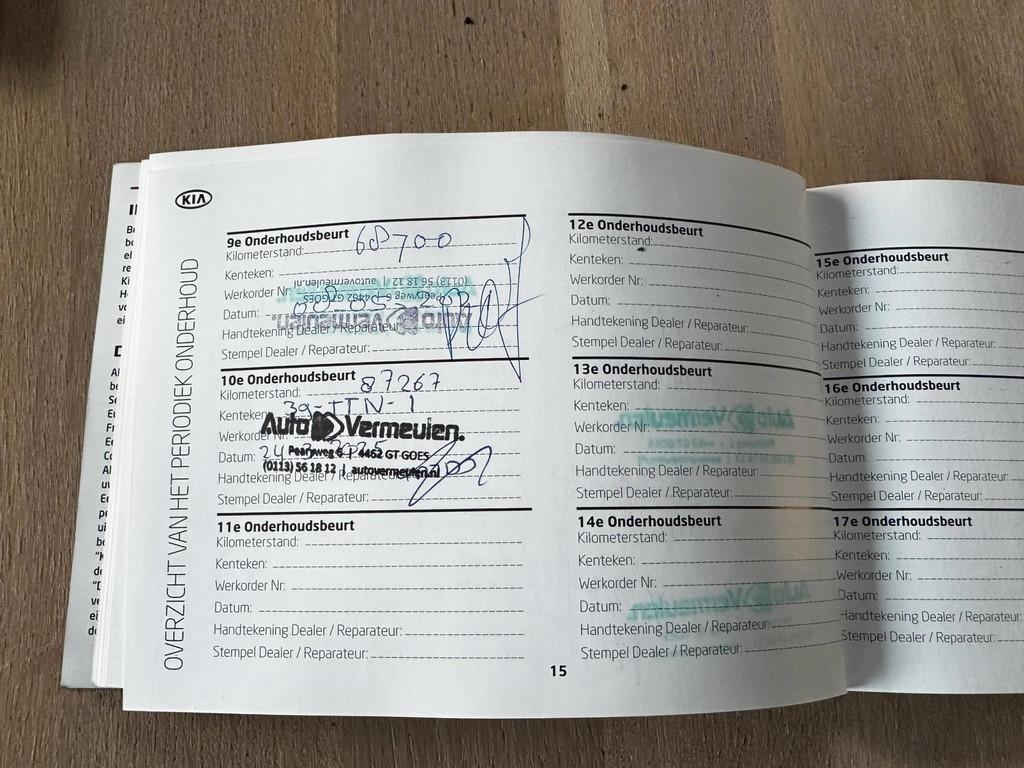 KIA
OVERZICHT VAN HET PERIODIEK ONDERHOUD
9e Onderhoudsbeurt
Kilometerstand: 68700
Kenteken:
Werkorder Nr:
Datum:
Handtekening Dealer / Reparateur:
Stempel Dealer / Reparateur:
Auto Vermeulen.
Pearyweg 6 4462 GT GOES
(0113) 56 18 12 | autovermeulen.nl
10e Onderhoudsbeurt
Kilometerstand: 87267
Kenteken: 39-TTN-1
Werkorder Nr:
Datum: 24 3 2025
Handtekening Dealer / Reparateur:
Stempel Dealer / Reparateur:
Auto Vermeulen.
Pearyweg 6 4462 GT GOES
(0113) 56 18 12 | autovermeulen.nl
11e Onderhoudsbeurt
Kilometerstand:
Kenteken:
Werkorder Nr:
Datum:
Handtekening Dealer / Reparateur:
Stempel Dealer / Reparateur:
12e Onderhoudsbeurt
Kilometerstand:
Kenteken:
Werkorder Nr:
Datum:
Handtekening Dealer / Reparateur:
Stempel Dealer / Reparateur:
13e Onderhoudsbeurt
Kilometerstand:
Kenteken:
Werkorder Nr:
Datum:
Handtekening Dealer / Reparateur:
Stempel Dealer / Reparateur:
14e Onderhoudsbeurt
Kilometerstand:
Kenteken:
Werkorder Nr:
Datum:
Handtekening Dealer / Reparateur:
Stempel Dealer / Reparateur:
15
15e Onderhoudsbeurt
Kilometerstand:
Kenteken:
Werkorder Nr:
Datum:
Handtekening Dealer / Reparateur:
Stempel Dealer / Reparateur:
16e Onderhoudsbeurt
Kilometerstand:
Kenteken:
Werkorder Nr:
Datum:
Handtekening Dealer / Reparateur:
Stempel Dealer / Reparateur:
17e Onderhoudsbeurt
Kilometerstand:
Kenteken:
Werkorder Nr:
Datum:
Handtekening Dealer / Reparateur:
Stempel Dealer / Reparateur: